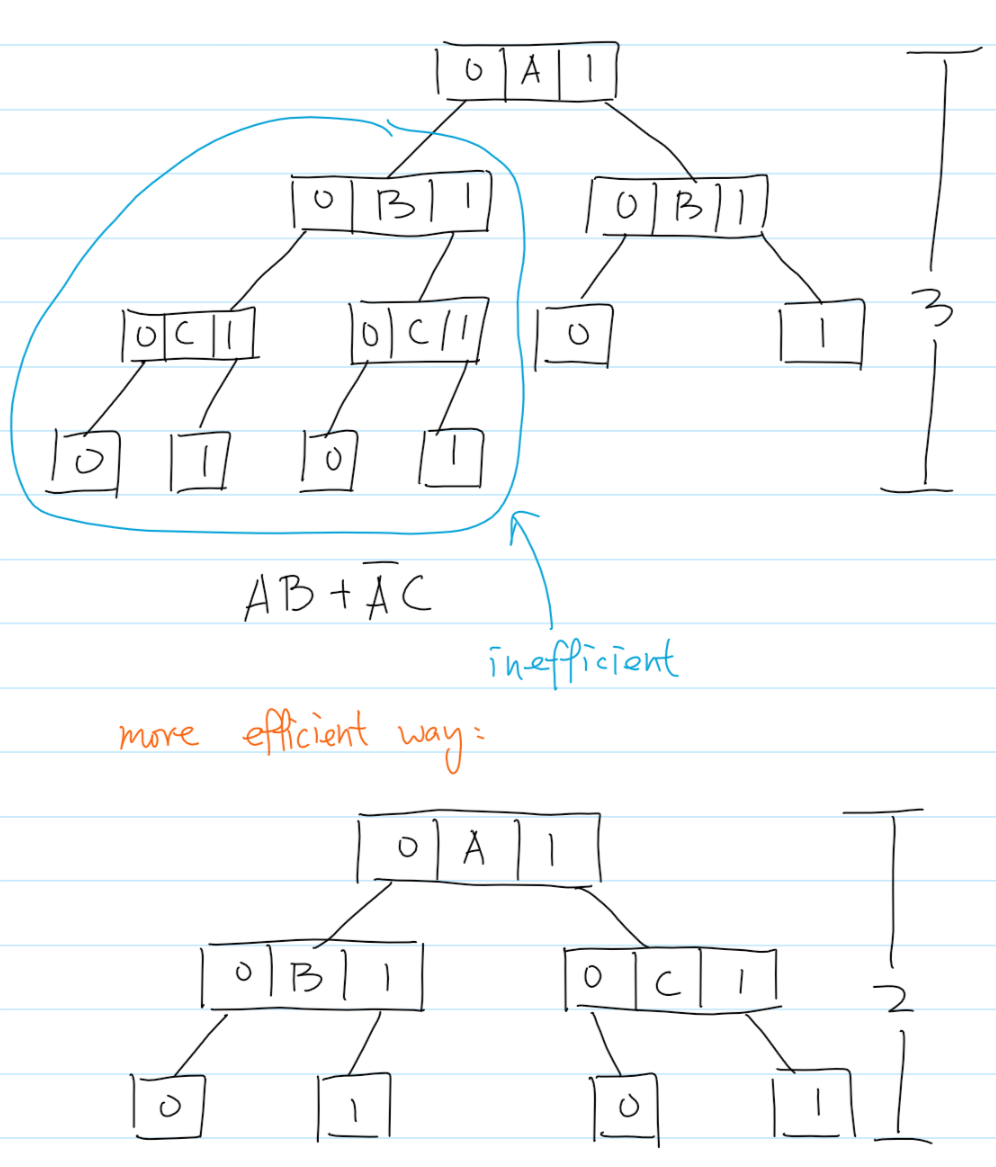 0 A 1
0 B 1 0 B 1
0 C 1 0 C 1 0 1
3
0 1 0 1
AB + A̅C
inefficient
more efficient way:
0 A 1
0 B 1 0 C 1
2
0 1 0 1